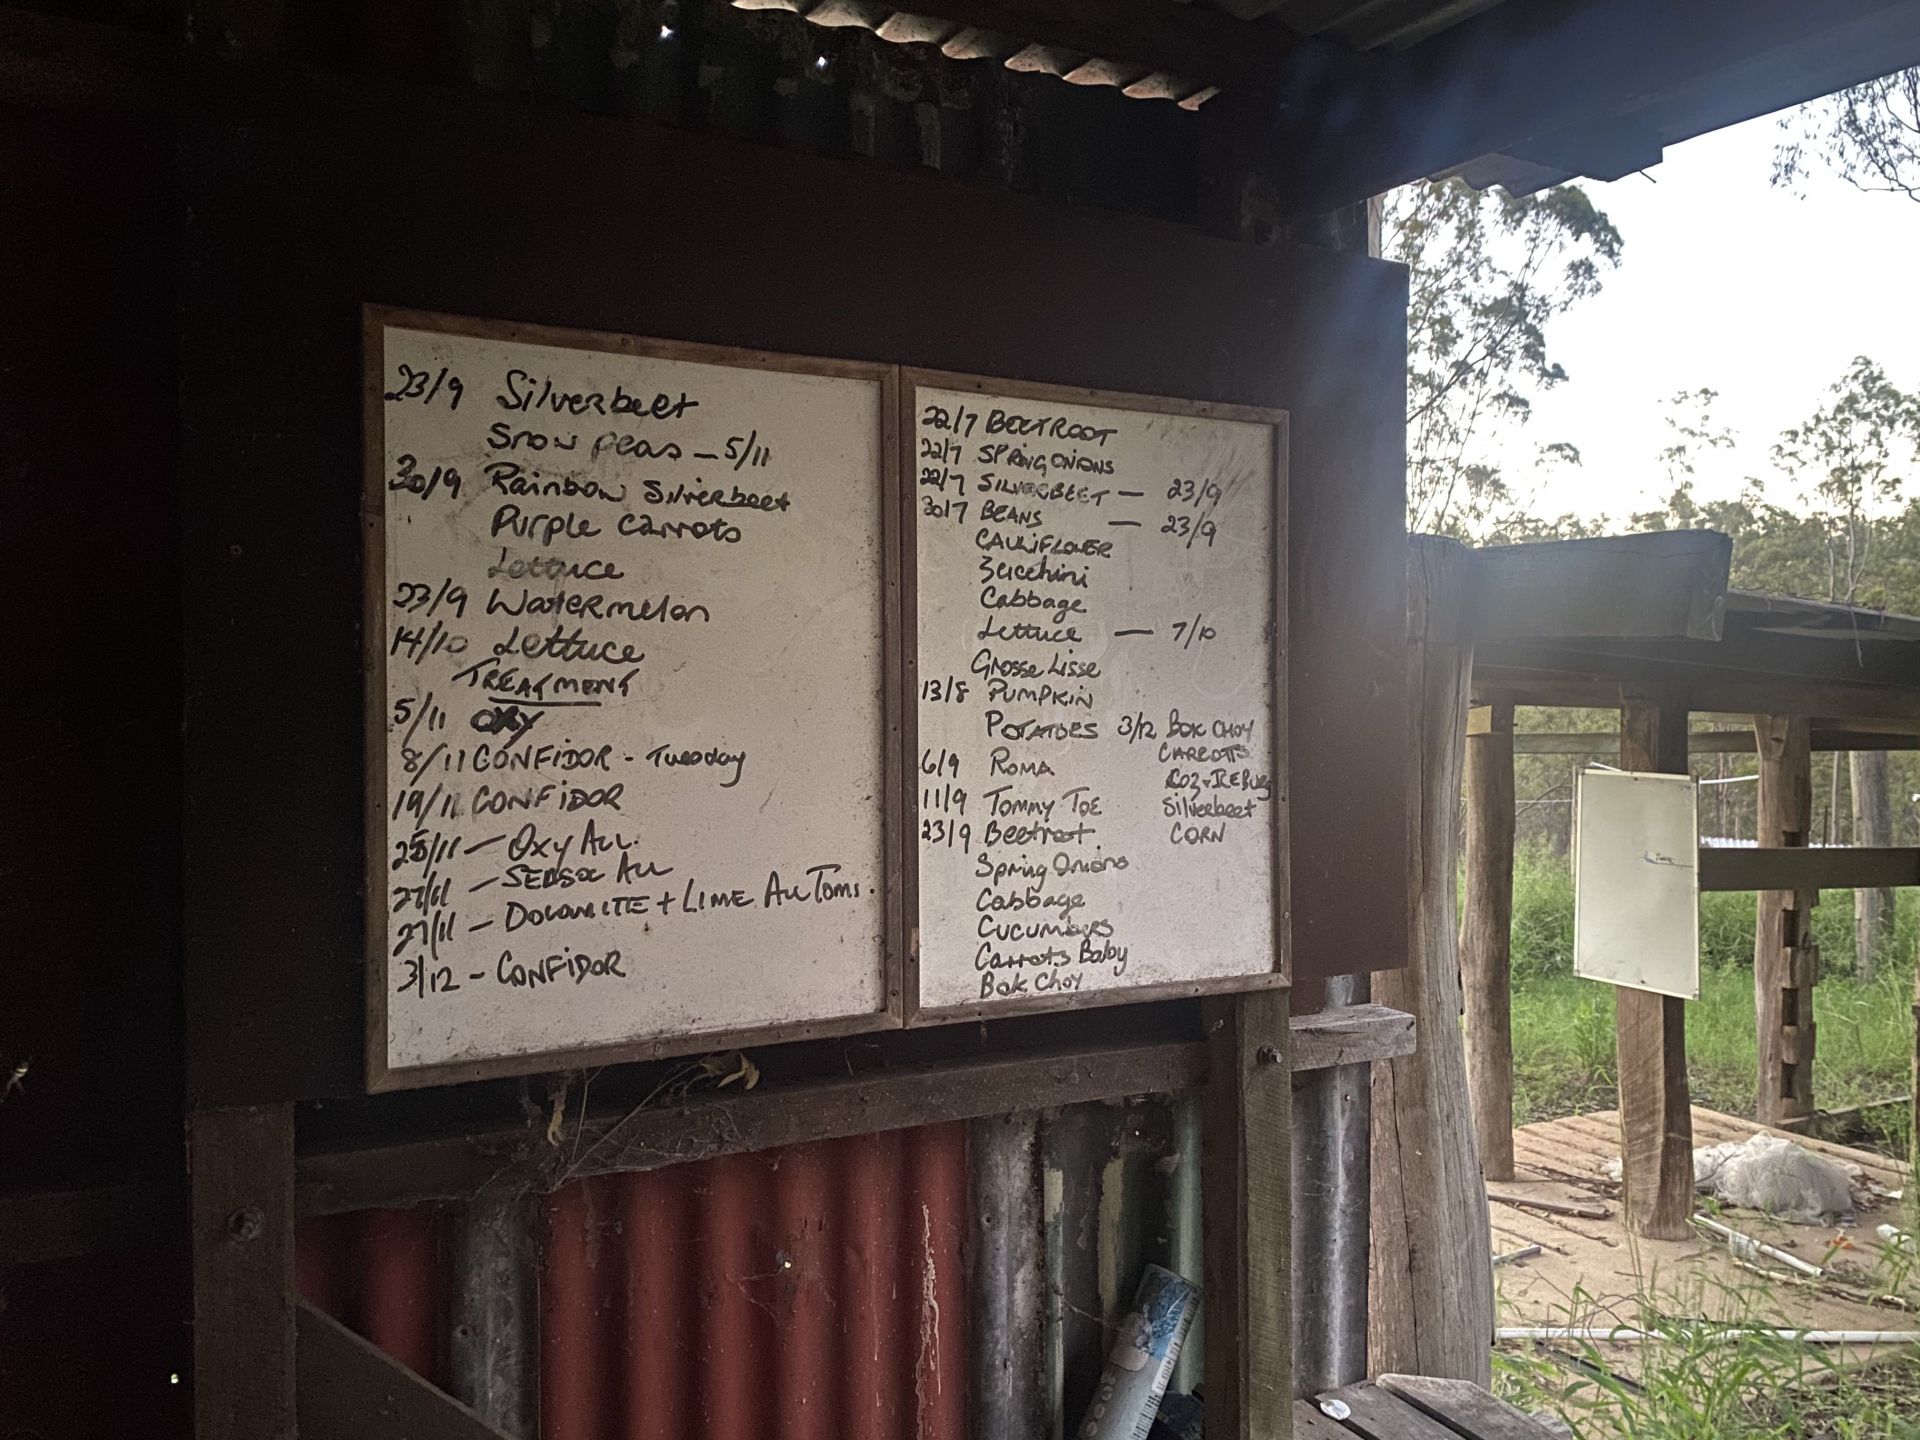 23/9 Silverbeet
Snow peas – 5/11
30/9 Rainbow Silverbeet
Purple Carrots
Lettuce
23/9 Watermelon
14/10 Lettuce
TREATMENT
5/11 OXY
8/11 CONFIDOR - Tuesday
19/11 CONFIDOR
25/11 – OXY ALL.
27/11 – ALL
27/11 – DOLOMITE + LIME ALL TOMS.
3/12 - CONFIDOR
22/7 BEETROOT
22/7 SPRING ONIONS
22/7 SILVERBEET — 23/9
30/7 BEANS — 23/9
CAULIFLOWER
Zucchini
Cabbage
Lettuce — 7/10
Grosse Lisse
13/8 PUMPKIN
POTATOES 3/12 BOK CHOY
CARROTS
6/9 ROMA
11/9 TOMMY TOE Silverbeet
23/9 Beetroot CORN
Spring Onions
Cabbage
Cucumbers
Carrots Baby
Bok Choy